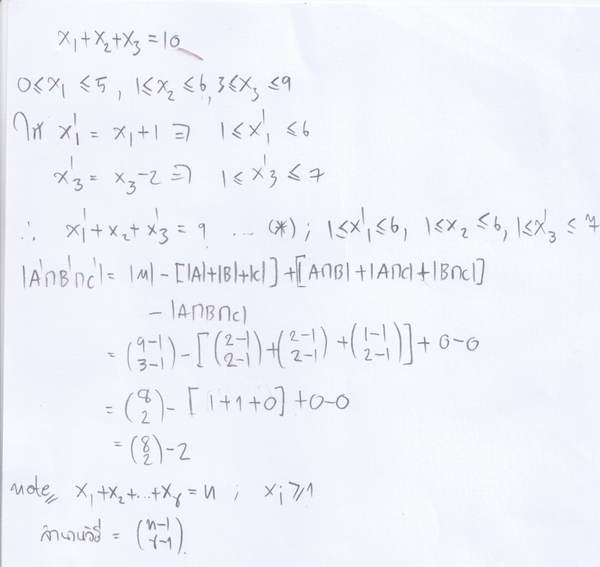 x₁+x₂+x₃=10
0≤x₁≤5, 1≤x₂≤6, 3≤x₃≤9
ให้ x₁' = x₁+1 ⇒ 1≤x₁'≤6
x₃' = x₃-2 ⇒ 1≤x₃'≤7
∴ x₁'+x₂+x₃' = 9 ... (*) ; 1≤x₁'≤6, 1≤x₂≤6, 1≤x₃'≤7
|A'∩B'∩C'| = |M| - [|A|+|B|+|C|] + [|A∩B|+|A∩C|+|B∩C|]
- |A∩B∩C|
= (9-1 3-1) - [(2-1 2-1) + (2-1 2-1) + (1-1 2-1)] + 0-0
= (8 2) - [1+1+0] + 0-0
= (8 2) - 2
note// x₁+x₂+...+xᵣ = n ; xᵢ≥1
จำนวนวิธี = (n-1 r-1)